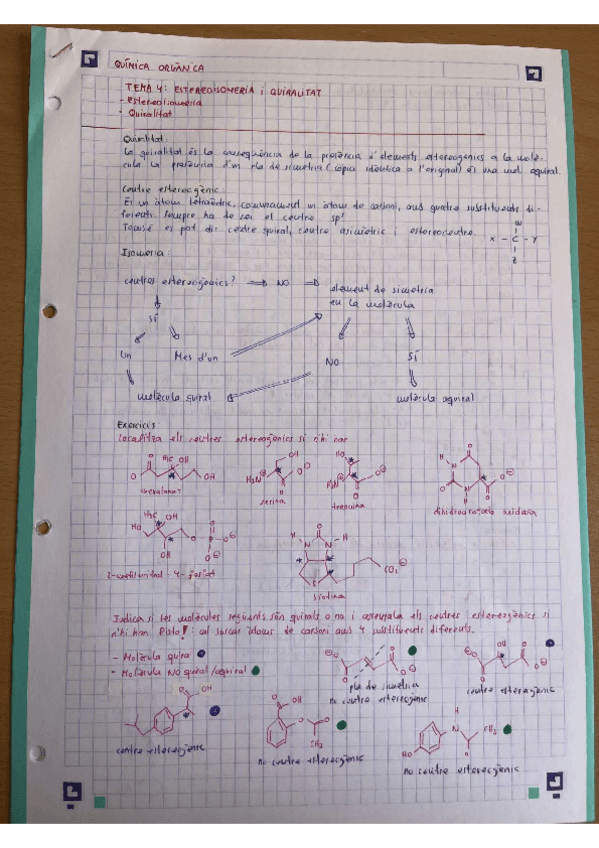 QUÍMICA ORGÀNICA
TEMA 4: ESTEREOISOMERIA I QUIRALITAT
- Estereoisomeria
- Quiralitat
Quiralitat:
La quiralitat és la conseqüència de la presència d'elements estereogènics a la molè-
cula. La presència d'un pla de simetria (còpia idèntica a l'original) és una mol. aquiral.
Centre estereogènic:
És un àtom tetraèdric, comunament un àtom de carboni, amb quatre substituents di-
ferents. Sempre ha de ser el centre sp³
També es pot dir centre quiral, centre asimètric i estereocentre.
X - C - Y
Z
Isomeria:
centres estereogènics? NO element de simetria
en la molècula
SÍ
Un Més d'un NO SÍ
molècula quiral molècula aquiral
Exercicis
Localitza els centres estereogènics si n'hi han
mevalonat
serina
treonina
2-metileritritol-4-fosfat
biotina
Indica si les molècules següents són quirals o no i assenyala els centres estereogènics si
n'hi han. Pista!: cal buscar àtoms de carboni amb 4 substituents diferents.
- Molècula quiral
- Molècula NO quiral/aquiral
pla de simetria
no centre estereogènic
centre estereogènic
centre estereogènic
no centre estereogènic
no centre estereogènic